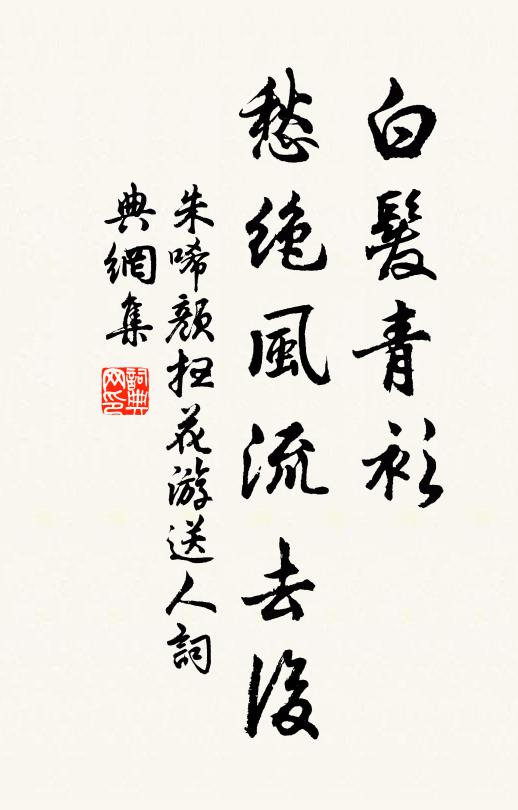 白髮青衫
愁絶風流去後
朱唏顏扫花游送人詞
典網集
詞典網印